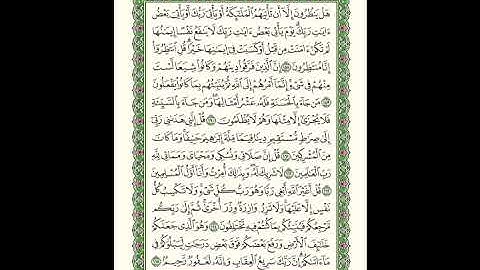 هَلْ يَنظُرُونَ إِلَّآ أَن تَأْتِيَهُمُ ٱلْمَلَٰٓئِكَةُ أَوْ يَأْتِيَ رَبُّكَ أَوْ يَأْتِيَ بَعْضُ
ءَايَٰتِ رَبِّكَ يَوْمَ يَأْتِي بَعْضُ ءَايَٰتِ رَبِّكَ لَا يَنفَعُ نَفْسًا إِيمَٰنُهَا
لَمْ تَكُنْ ءَامَنَتْ مِن قَبْلُ أَوْ كَسَبَتْ فِىٓ إِيمَٰنِهَا خَيْرًا قُلِ ٱنتَظِرُوٓا۟
إِنَّا مُنتَظِرُونَ ١٥٨ إِنَّ ٱلَّذِينَ فَرَّقُوا۟ دِينَهُمْ وَكَانُوا۟ شِيَعًا لَّسْتَ
مِنْهُمْ فِى شَىْءٍ إِنَّمَآ أَمْرُهُمْ إِلَى ٱللَّهِ ثُمَّ يُنَبِّئُهُم بِمَا كَانُوا۟ يَفْعَلُونَ
١٥٩ مَن جَآءَ بِٱلْحَسَنَةِ فَلَهُۥ عَشْرُ أَمْثَالِهَا وَمَن جَآءَ بِٱلسَّيِّئَةِ
فَلَا يُجْزَىٰٓ إِلَّا مِثْلَهَا وَهُمْ لَا يُظْلَمُونَ ١٦٠ قُلْ إِنَّنِى هَدَىٰنِى رَبِّىٓ
إِلَىٰ صِرَٰطٍ مُّسْتَقِيمٍ دِينًا قِيَمًا مِّلَّةَ إِبْرَٰهِيمَ حَنِيفًا وَمَا كَانَ
مِنَ ٱلْمُشْرِكِينَ ١٦١ قُلْ إِنَّ صَلَاتِى وَنُسُكِى وَمَحْيَاىَ وَمَمَاتِى لِلَّهِ
رَبِّ ٱلْعَٰلَمِينَ ١٦٢ لَا شَرِيكَ لَهُۥ وَبِذَٰلِكَ أُمِرْتُ وَأَنَا۠ أَوَّلُ ٱلْمُسْلِمِينَ
١٦٣ قُلْ أَغَيْرَ ٱللَّهِ أَبْغِى رَبًّا وَهُوَ رَبُّ كُلِّ شَىْءٍ وَلَا تَكْسِبُ كُلُّ
نَفْسٍ إِلَّا عَلَيْهَا وَلَا تَزِرُ وَازِرَةٌ وِزْرَ أُخْرَىٰ ثُمَّ إِلَىٰ رَبِّكُم
مَّرْجِعُكُمْ فَيُنَبِّئُكُم بِمَا كُنتُمْ فِيهِ تَخْتَلِفُونَ ١٦٤ وَهُوَ ٱلَّذِى جَعَلَكُمْ
خَلَٰٓئِفَ ٱلْأَرْضِ وَرَفَعَ بَعْضَكُمْ فَوْقَ بَعْضٍ دَرَجَٰتٍ لِّيَبْلُوَكُمْ فِى
مَآ ءَاتَىٰكُمْ إِنَّ رَبَّكَ سَرِيعُ ٱلْعِقَابِ وَإِنَّهُۥ لَغَفُورٌ رَّحِيمٌ ١٦٥